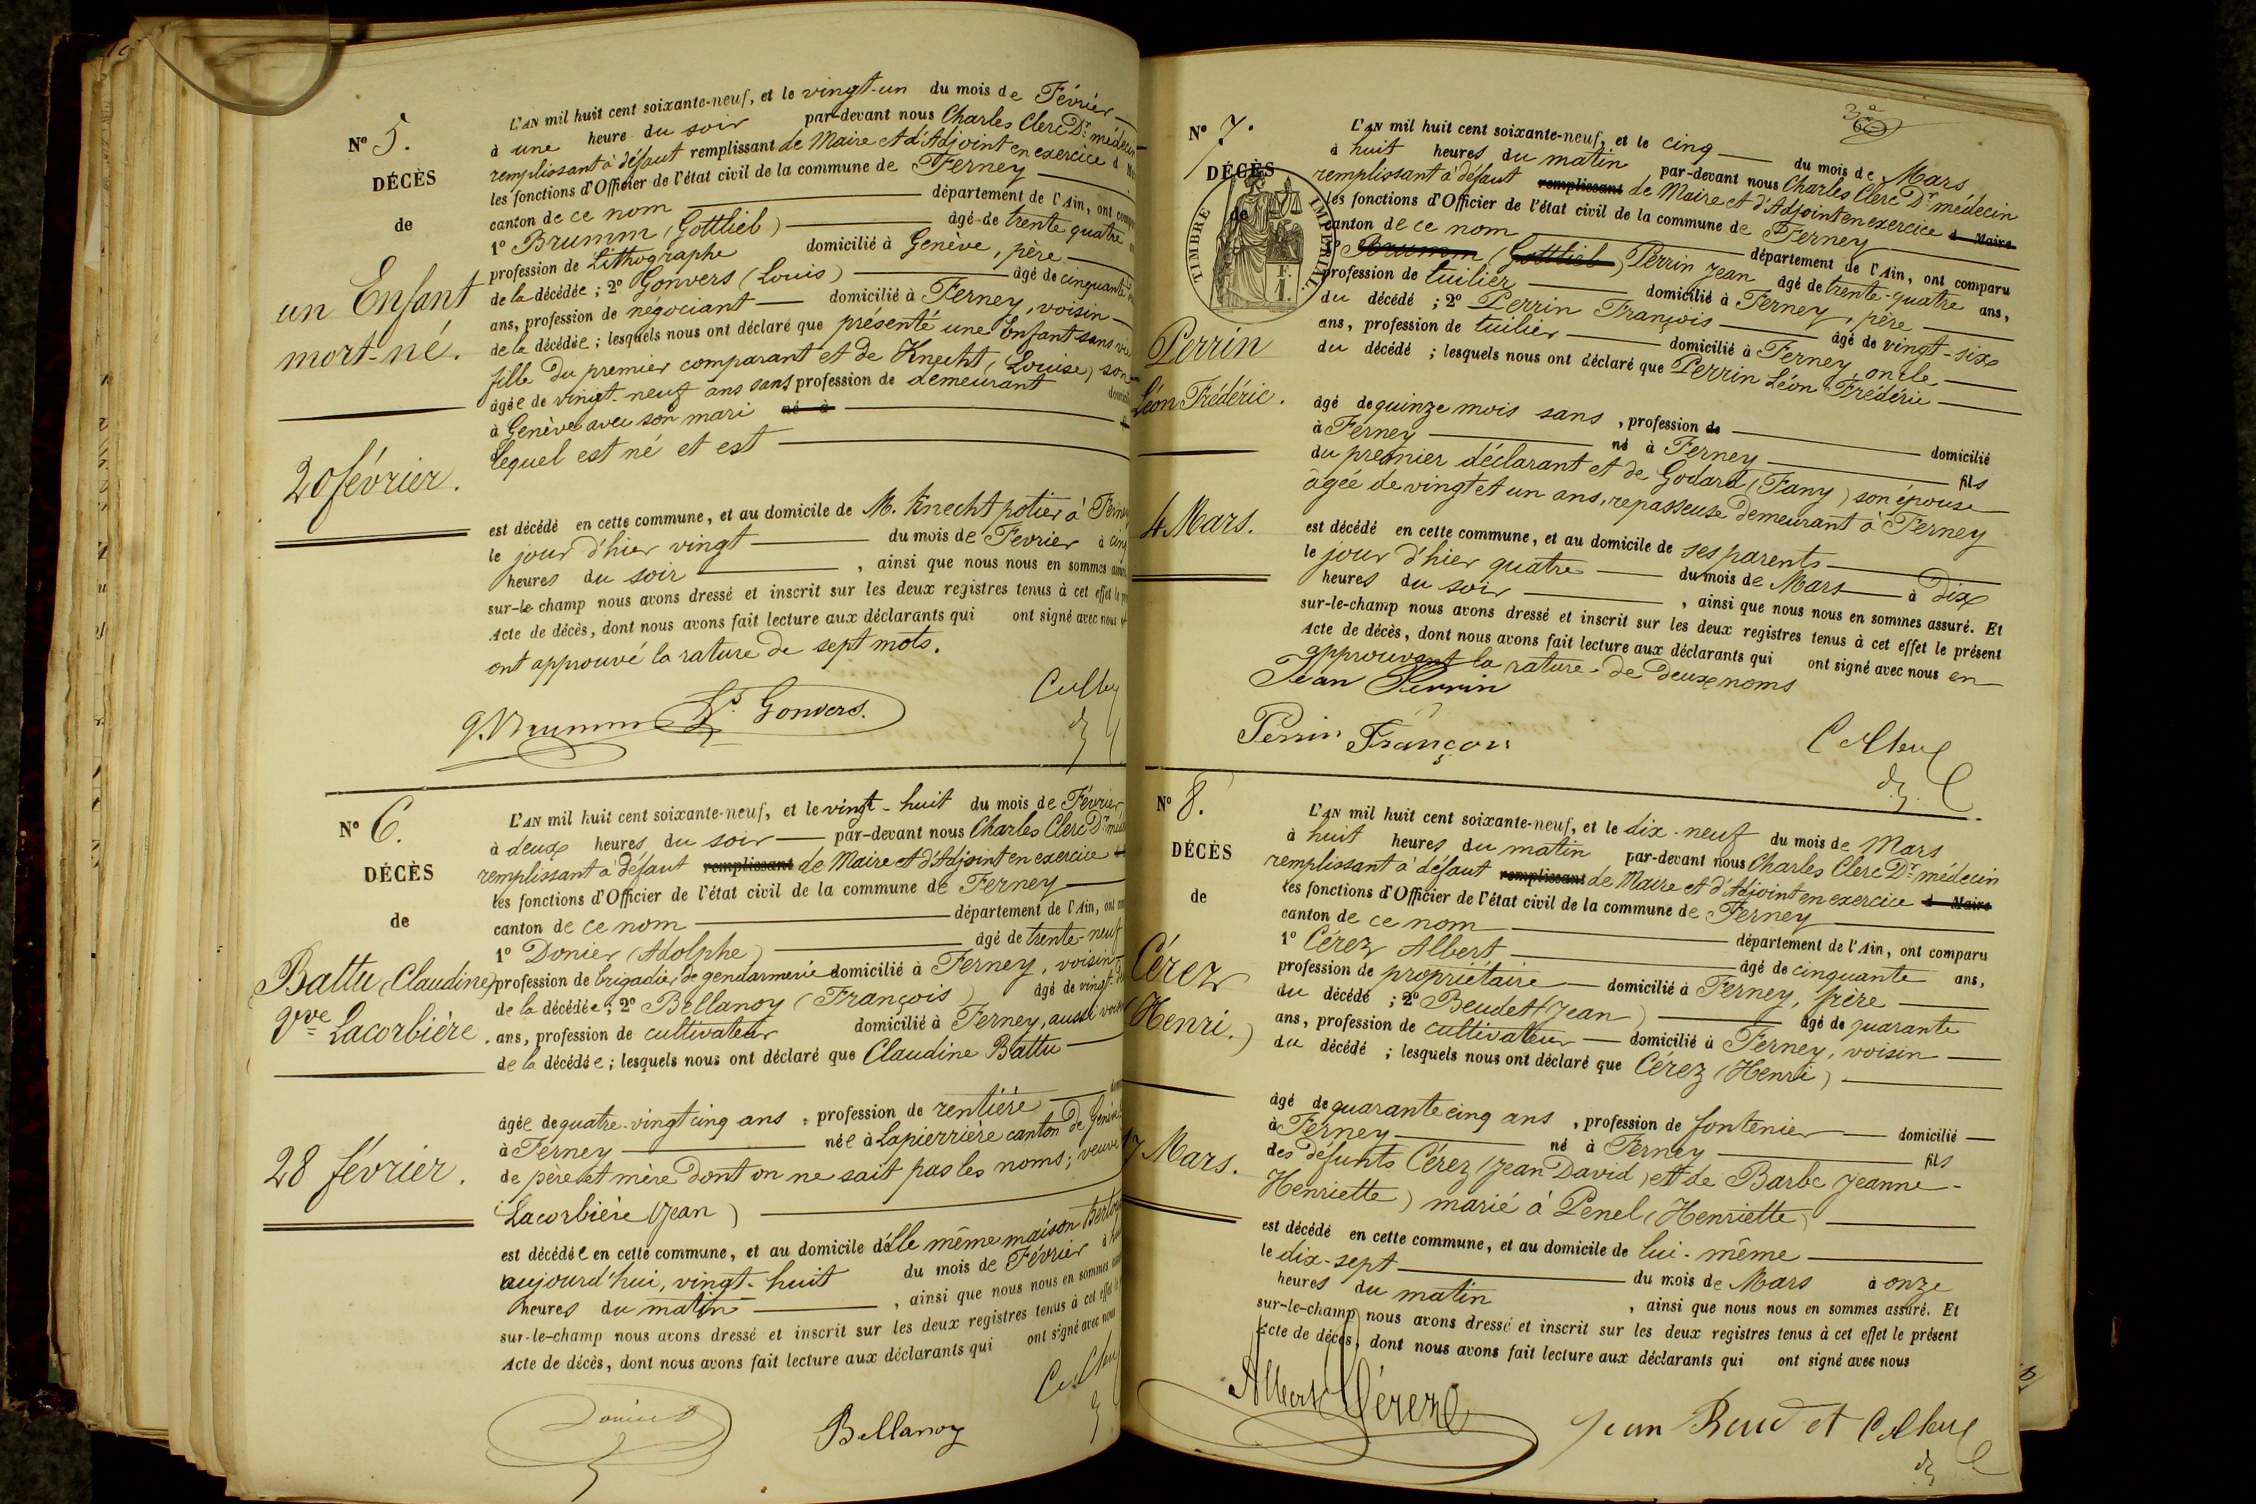 Nº 5.
DÉCÈS
de
un Enfant
mort-né.
20 février.
L'AN mil huit cent soixante-neuf, et le vingt-un du mois de Février
à une heure du soir par-devant nous Charles Clerc Dr médecin
remplissant à défaut remplissant de Maire et d'Adjoint en exercice
les fonctions d'Officier de l'état civil de la commune de Ferney
canton de ce nom département de l'Ain, ont
1º Brumm (Gottlieb) âgé de trente quatre
profession de Lithographe domicilié à Genève, père
de la décédée ; 2º Gonvers (Louis) âgé de cinquante
ans, profession de négociant domicilié à Ferney, voisin
de la décédée ; lesquels nous ont déclaré que présenté une Enfant sans vie
fille du premier comparant et de Knecht (Louise) son
âgée de vingt-neuf ans sans profession de demeurant
à Genève avec son mari né à
lequel est né et est
est décédé en cette commune, et au domicile de M. Knecht potier à Ferney
le jour d'hier vingt du mois de Février à cinq
heures du soir , ainsi que nous nous en sommes
sur-le-champ nous avons dressé et inscrit sur les deux registres tenus à cet effet le
Acte de décès, dont nous avons fait lecture aux déclarants qui ont signé avec nous et
ont approuvé la rature de sept mots.
G. Brumm Ls Gonvers.
Nº 6.
DÉCÈS
de
Battu (Claudine)
Vve Lacorbière.
28 février.
L'AN mil huit cent soixante-neuf, et le vingt-huit du mois de Février
à deux heures du soir par-devant nous Charles Clerc Dr
remplissant à défaut remplissant de Maire et d'Adjoint en exercice
les fonctions d'Officier de l'état civil de la commune de Ferney
canton de ce nom département de l'Ain, ont
1º Donier (Adolphe) âgé de trente-neuf
profession de brigadier de gendarmerie domicilié à Ferney, voisin
de la décédée ; 2º Bellanoy (François) âgé de vingt
ans, profession de cultivateur domicilié à Ferney, aussi
de la décédée ; lesquels nous ont déclaré que Claudine Battu
âgée de quatre-vingt cinq ans , profession de rentière
à Ferney née à Lapierrière canton de Genève
de père et mère dont on ne sait pas les noms ; veuve
Lacorbière (Jean)
est décédée en cette commune, et au domicile d'elle même maison
aujourd'hui, vingt-huit du mois de Février à
heures du matin , ainsi que nous nous en sommes
sur-le-champ nous avons dressé et inscrit sur les deux registres tenus à cet effet
Acte de décès, dont nous avons fait lecture aux déclarants qui ont signé avec nous
Bellanoy
Nº 7.
DÉCÈS
de
TIMBRE IMPÉRIAL
Perrin
Léon Frédéric.
4 Mars.
L'AN mil huit cent soixante-neuf, et le cinq du mois de Mars
à huit heures du matin par-devant nous Charles Clerc Dr médecin
remplissant à défaut remplissant de Maire et d'Adjoint en exercice d Maire
les fonctions d'Officier de l'état civil de la commune de Ferney
canton de ce nom département de l'Ain, ont comparu
1º Brumm (Gottlieb) Perrin Jean âgé de trente-quatre ans,
profession de tuilier domicilié à Ferney, père
du décédé ; 2º Perrin François âgé de vingt-six
ans, profession de tuilier domicilié à Ferney, oncle
du décédé ; lesquels nous ont déclaré que Perrin Léon Frédéric
âgé de quinze mois sans , profession de domicilié
à Ferney né à Ferney fils
du premier déclarant et de Godard (Fany) son épouse
âgée de vingt et un ans, repasseuse demeurant à Ferney
est décédé en cette commune, et au domicile de ses parents
le jour d'hier quatre du mois de Mars à dix
heures du soir , ainsi que nous nous en sommes assuré. Et
sur-le-champ nous avons dressé et inscrit sur les deux registres tenus à cet effet le présent
Acte de décès, dont nous avons fait lecture aux déclarants qui ont signé avec nous en
approuvant la rature de deux noms
Jean Perrin
Perrin François
Nº 8.
DÉCÈS
de
Cérez
(Henri.)
17 Mars.
L'AN mil huit cent soixante-neuf, et le dix-neuf du mois de Mars
à huit heures du matin par-devant nous Charles Clerc Dr médecin
remplissant à défaut remplissant de Maire et d'Adjoint en exercice d Maire
les fonctions d'Officier de l'état civil de la commune de Ferney
canton de ce nom département de l'Ain, ont comparu
1º Cérez Albert âgé de cinquante ans,
profession de propriétaire domicilié à Ferney, frère
du décédé ; 2º Beudet (Jean) âgé de quarante
ans, profession de cultivateur domicilié à Ferney, voisin
du décédé ; lesquels nous ont déclaré que Cérez (Henri)
âgé de quarante cinq ans , profession de fontenier domicilié
à Ferney né à Ferney fils
des défunts Cérez (Jean David) et de Barbe Jeanne-
Henriette) marié à Penel (Henriette)
est décédé en cette commune, et au domicile de lui-même
le dix-sept du mois de Mars à onze
heures du matin , ainsi que nous nous en sommes assuré. Et
sur-le-champ nous avons dressé et inscrit sur les deux registres tenus à cet effet le présent
Acte de décès, dont nous avons fait lecture aux déclarants qui ont signé avec nous
Albert Cérez